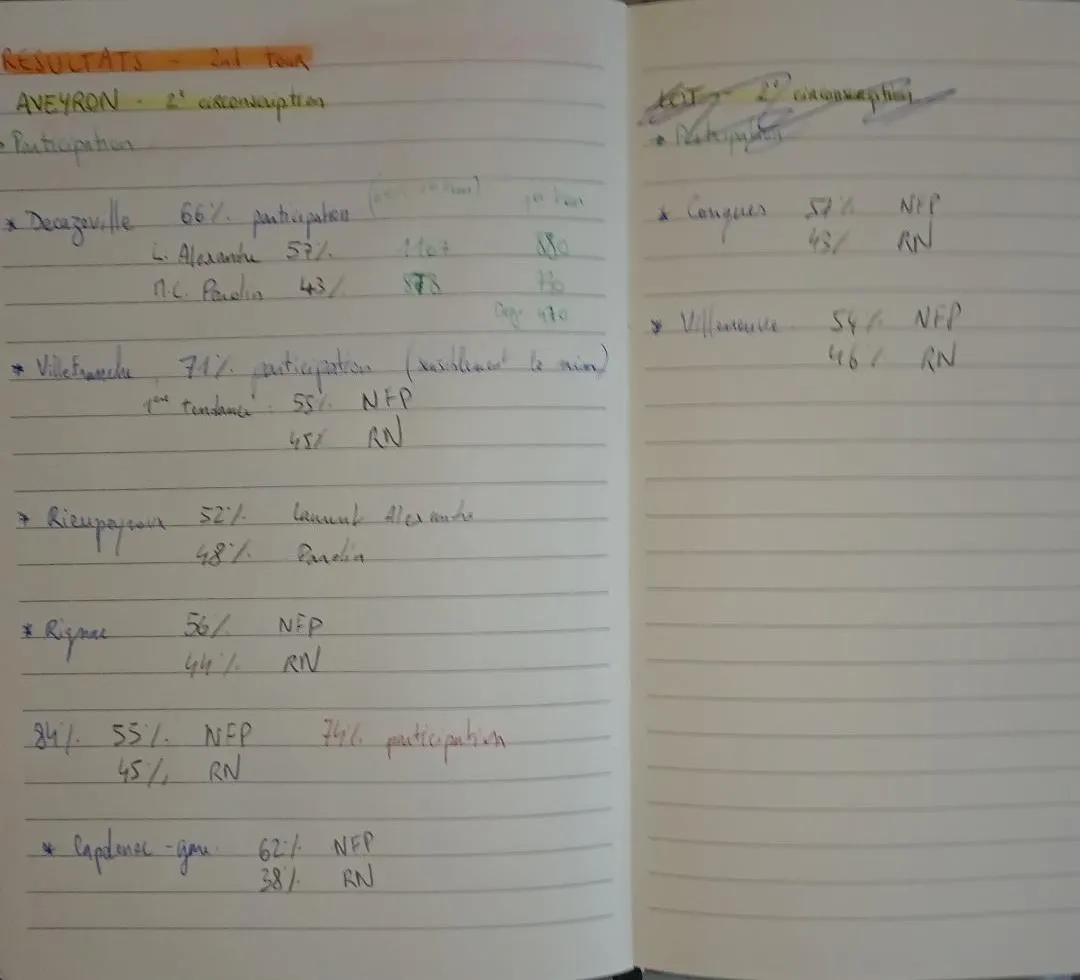 RESULTATS - 2nd Tour
AVEYRON - 2e circonscription
Participation
* Decazeville 66% participation
L. Alexandre 57% 1107 880
M.C. Parolin 43% 878 730
470
* Villefranche 71% participation (sensiblement le même)
1ère tendance : 55% NFP
45% RN
* Rieupeyroux 52% Laurent Alexandre
48% Parolin
* Rignac 56% NFP
44% RN
84% 55% NFP 74% participation
45% RN
* Capdenac-gare 62% NFP
38% RN
LOT - 2e circonscription
* Participation
* Conques 57% NFP
43% RN
* Villeneuve 54% NFP
46% RN